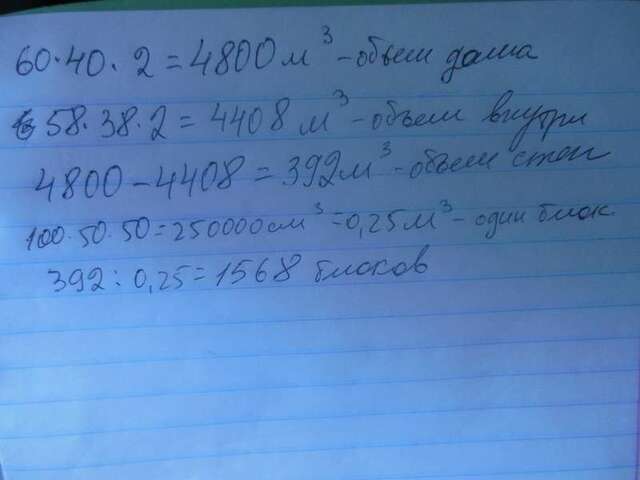 60·40·2=4800м³-объем дома
58·38·2=4408м³-объем внутри
4800-4408=392м³-объем стен
100·50·50=250000см³=0,25м³-один блок
392:0,25=1568 блоков